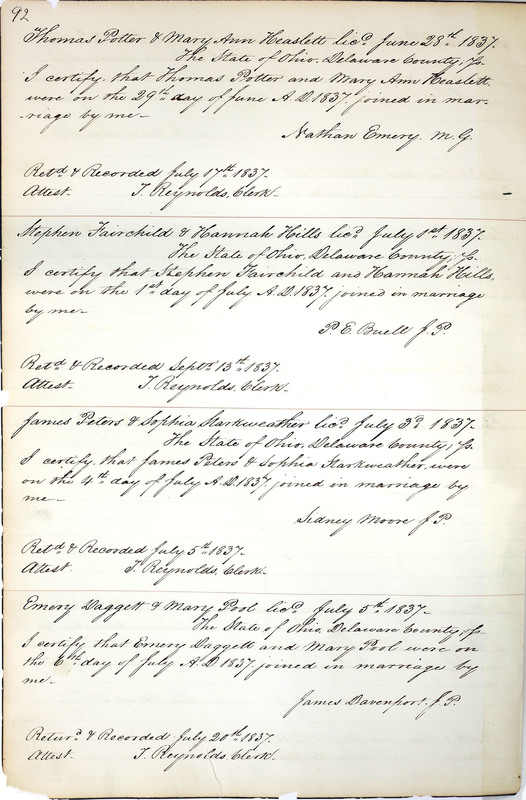 92
Thomas Potter & Mary Ann Heaslett licd June 28th 1837.
The State of Ohio, Delaware County, Ss.
I certify, that Thomas Potter and Mary Ann Heaslett
were on the 29th day of June A.D. 1837. joined in mar-
riage by me—
Nathan Emery. M.G.
Retd & Recorded July 17th 1837.
Attest. T. Reynolds, Clerk.
Stephen Fairchild & Hannah Hills licd July 1st 1837.
The State of Ohio, Delaware County, Ss.
I certify that Stephen Fairchild and Hannah Hills,
were on the 1st day of July A.D. 1837. joined in marriage
by me—
P. E. Buell J.P.
Retd & Recorded Septr 13th 1837.
Attest. T. Reynolds, Clerk.
James Peters & Sophia Starkweather licd July 3d 1837.
The State of Ohio, Delaware County, Ss.
I certify, that James Peters & Sophia Starkweather, were
on the 4th day of July A.D. 1837. joined in marriage by
me—
Sidney Moore J.P.
Retd & Recorded July 5th 1837.
Attest T. Reynolds, Clerk.
Emery Daggett & Mary Pool licd July 5th 1837.
The State of Ohio, Delaware County, Ss.
I certify that Emery Daggett and Mary Pool were on
the 6th day of July A.D. 1837. joined in marriage by
me—
James Davenport. J.P.
Returd & Recorded July 20th 1837.
Attest. T. Reynolds, Clerk.